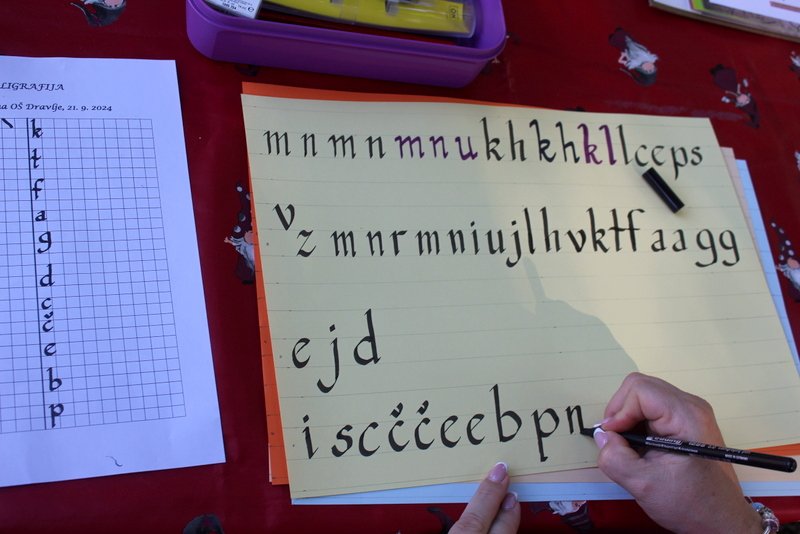 LIGRAFIJA
OŠ Dravlje, 21. 9. 2024
k
t
f
a
g
d
c
č
e
b
p
m n m n m n u k h k h k l l c e p s
v z m n r m n i u j l h v k t f a a g g
e j d
i s c č č e e b p n
edding